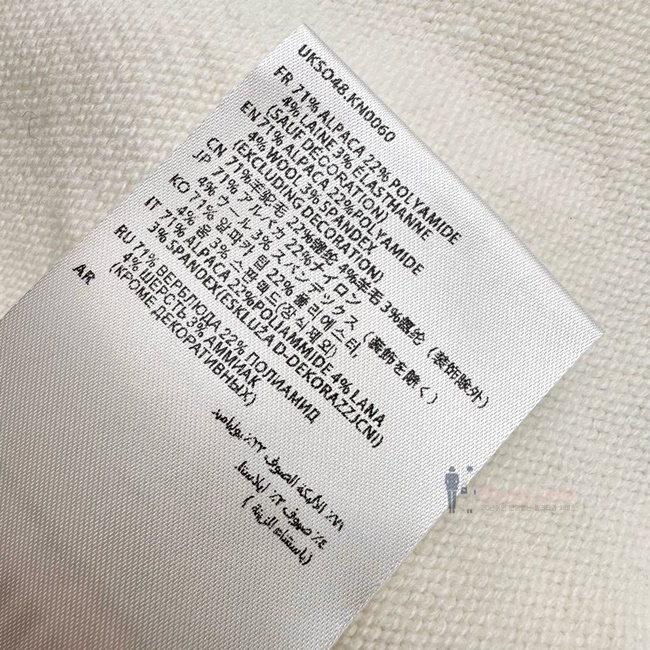 UKSO48.KN0060
FR 71% ALPACA 22% POLYAMIDE
4% LAINE 3% ELASTHANNE
(SAUF DÉCORATION)
EN 71% ALPACA 22%POLYAMIDE
4% WOOL 3% SPANDEX
(EXCLUDING DECORATION)
CN 71%羊驼毛 22%锦纶 4%羊毛 3%氨纶（装饰除外）
JP 71% アルパカ 22%ナイロン
4% ウール 3% スパンデックス（装飾を除く）
KO 71% 알파카 털 22% 폴리에스터,
4% 울 3% 스판덱스(장식제외)
IT 71% ALPACA 22%POLIAMMIDE 4% LANA
3% SPANDEX(ESKLIŻA D-DEKORAZZJCNI)
RU 71% ВЕРБЛЮДА 22% ПОЛИАМИД
4% ШЕРСТЬ 3% АММИАК
(КРОМЕ ДЕКОРАТИВНЫХ)
AR
الصوف ٢٢٪ بولياميد
٤٪ صوف ٣٪
(باستثناء الزينة)